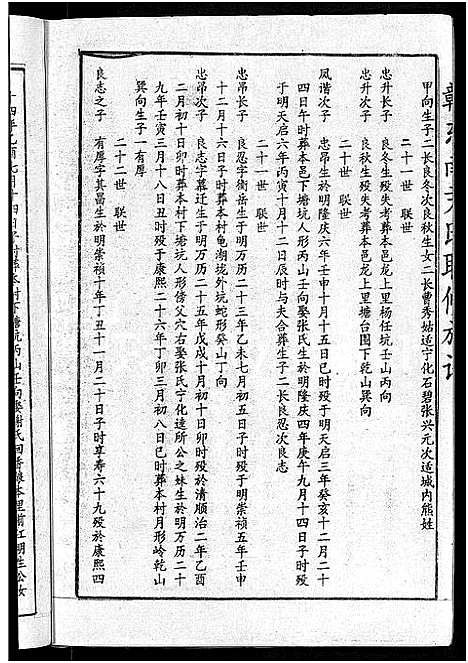 甲向生子二长良冬次良秋生女二长曹秀姑适宁化石碧张兴元次适城内熊姓
二十一世 联世
忠升长子 良冬生殁失考葬本邑龙上里杨任坑壬山丙向
忠升次子 良秋生殁失考葬本邑龙上里塘台围下乾山巽向
二十世 联世
凤谐次子 忠昂生於明隆庆六年壬申十月十五日巳时殁于明天启三年癸亥十二月二十
四日午时葬本邑下塘坑人形丙山壬向娶曹氏生於明隆庆四年庚午九月十四日子时殁
于明天启六年丙寅十月十二日辰时与夫合葬生子二长良忍次良志
二十一世 联世
忠昂长子 良忍字衡岳生于明万历二十三年乙未七月初五日子时殁于明崇祯五年壬申
十二月十六日子时葬本村龟湖垅外坑蛇形癸山丁向
忠昂次子 良志字慕迁生于明万历二十五年戊戌十月初十日卯时殁於清顺治二年乙酉
二月初十日卯时葬本村下塘坑人形傍父穴右娶张氏宁化达所公之妹生於明万历二十
九年壬寅三月十八日丑时殁于康熙二十六年丁卯三月初八日巳时葬本村月形岭乾山
巽向生子一有厚
二十二世 联世
良志之子 有厚字其昌生於明崇祯十年丁丑十一月二十日子时享寿六十九殁於康熙四
十四年乙酉七月十四日子时葬本村下塘坑丙山壬向娶谢氏回香娘本里前江明生公女
氏联修族谱